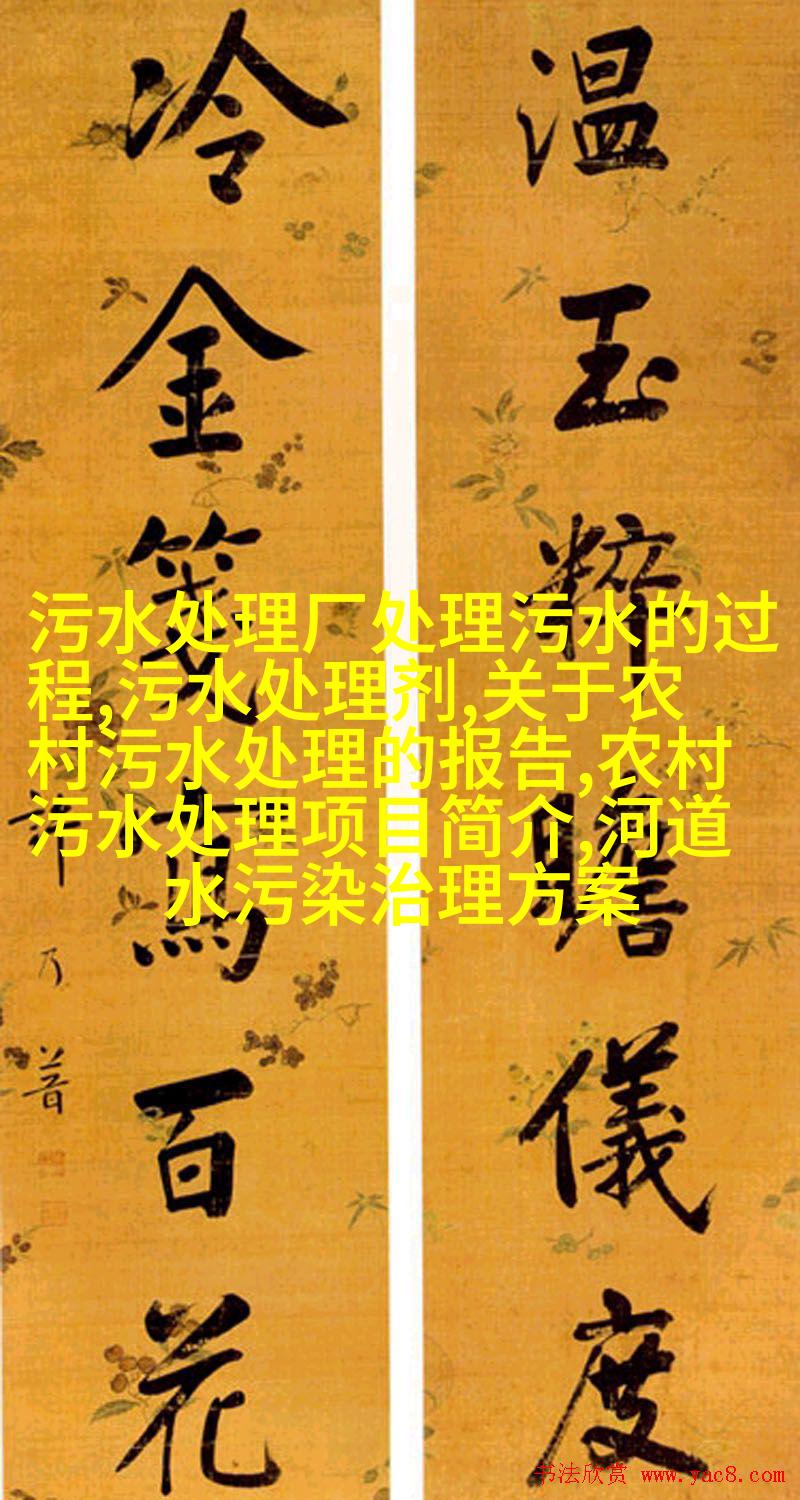 温玉粹瞻儀度
冷金箋寫百花
許乃普
污水处理厂处理污水的过
程,污水处理剂,关于农
村污水处理的报告,农村
污水处理项目简介,河道
水污染治理方案
书法欣赏 www.yac8.com